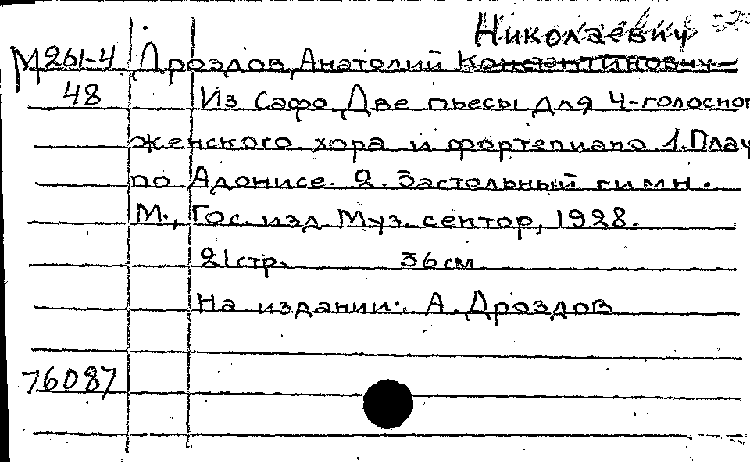 Николаевич
М261-4 Дроздов, Анатолий Константинович
48 Из Сафо. Две пьесы для 4-голосног
женского хора и фортепиано 1. Плач
по Адонисе. 2. Застольный гимн.
М., Гос. изд. Муз. сектор, 1928.
21 стр. 36 см
На издании: А. Дроздов
76087